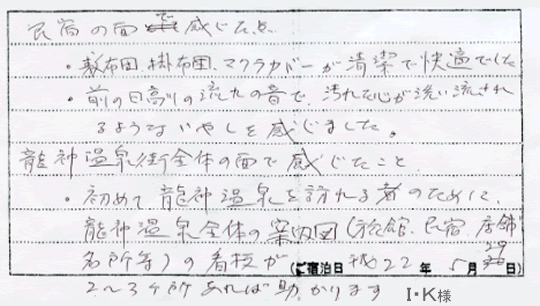 民宿の面で感じたこと
・敷布団、掛布団、マクラカバーが清潔で快適でした
・前の日高川の流れの音で、汚れた心が洗い流され
るようないやしを感じました。
龍神温泉街全体の面で感じたこと
・初めて龍神温泉を訪れる者のために、
龍神温泉全体の案内図(旅館、民宿、店舗
名所等)の看板が
(ご宿泊日 平成22年5月29日)
2〜3ヶ所あれば助かります
I・K様